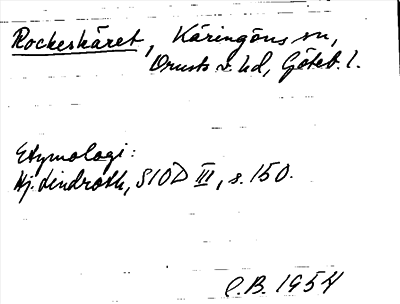 Rockeskäret, Käringöns sn,
Orusts v. hd, Göteb. l.
Etymologi:
Hj. Lindroth, SIOD III, s. 150.
C.B. 1954